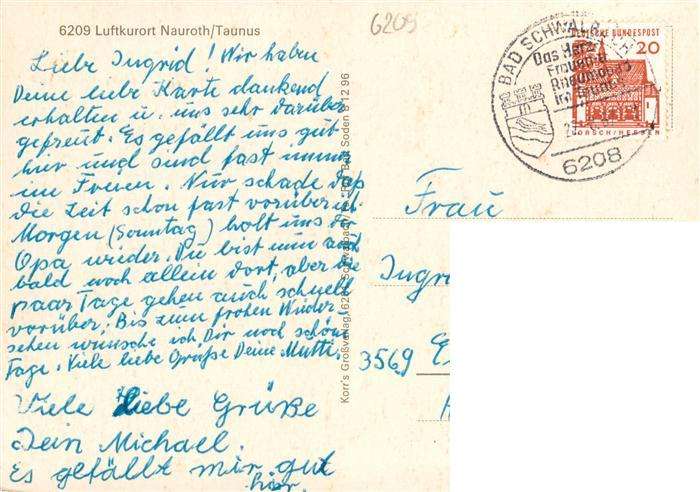 6209 Luftkurort Nauroth/Taunus
6209
Liebe Ingrid! Wir haben
Deine liebe Karte dankend
erhalten u. uns sehr darüber
gefreut. Es gefällt uns gut
hier und sind fast immer
im Freien. Nur schade daß
die Zeit schon fast vorüber
Morgen (Sonntag) holt uns der
Opa wieder. Du bist nun auch
bald noch allein dort, aber die
paar Tage gehen auch schnell
vorüber. Bis zum frohen Wieder-
sehen wünsche ich Dir noch schöne
Tage. Viele liebe Grüße Deine Mutti.
Viele liebe Grüße
Dein Michael.
Es gefällt mir gut
hier.
Korr's Großverlag, Bad Soden 8 12 96
BAD SCHWALBACH
Das Herz
Frauen- u.
Rheumabad
im
6208
DEUTSCHE BUNDESPOST
20
LORSCH/HESSEN
Frau
Ingrid
3569